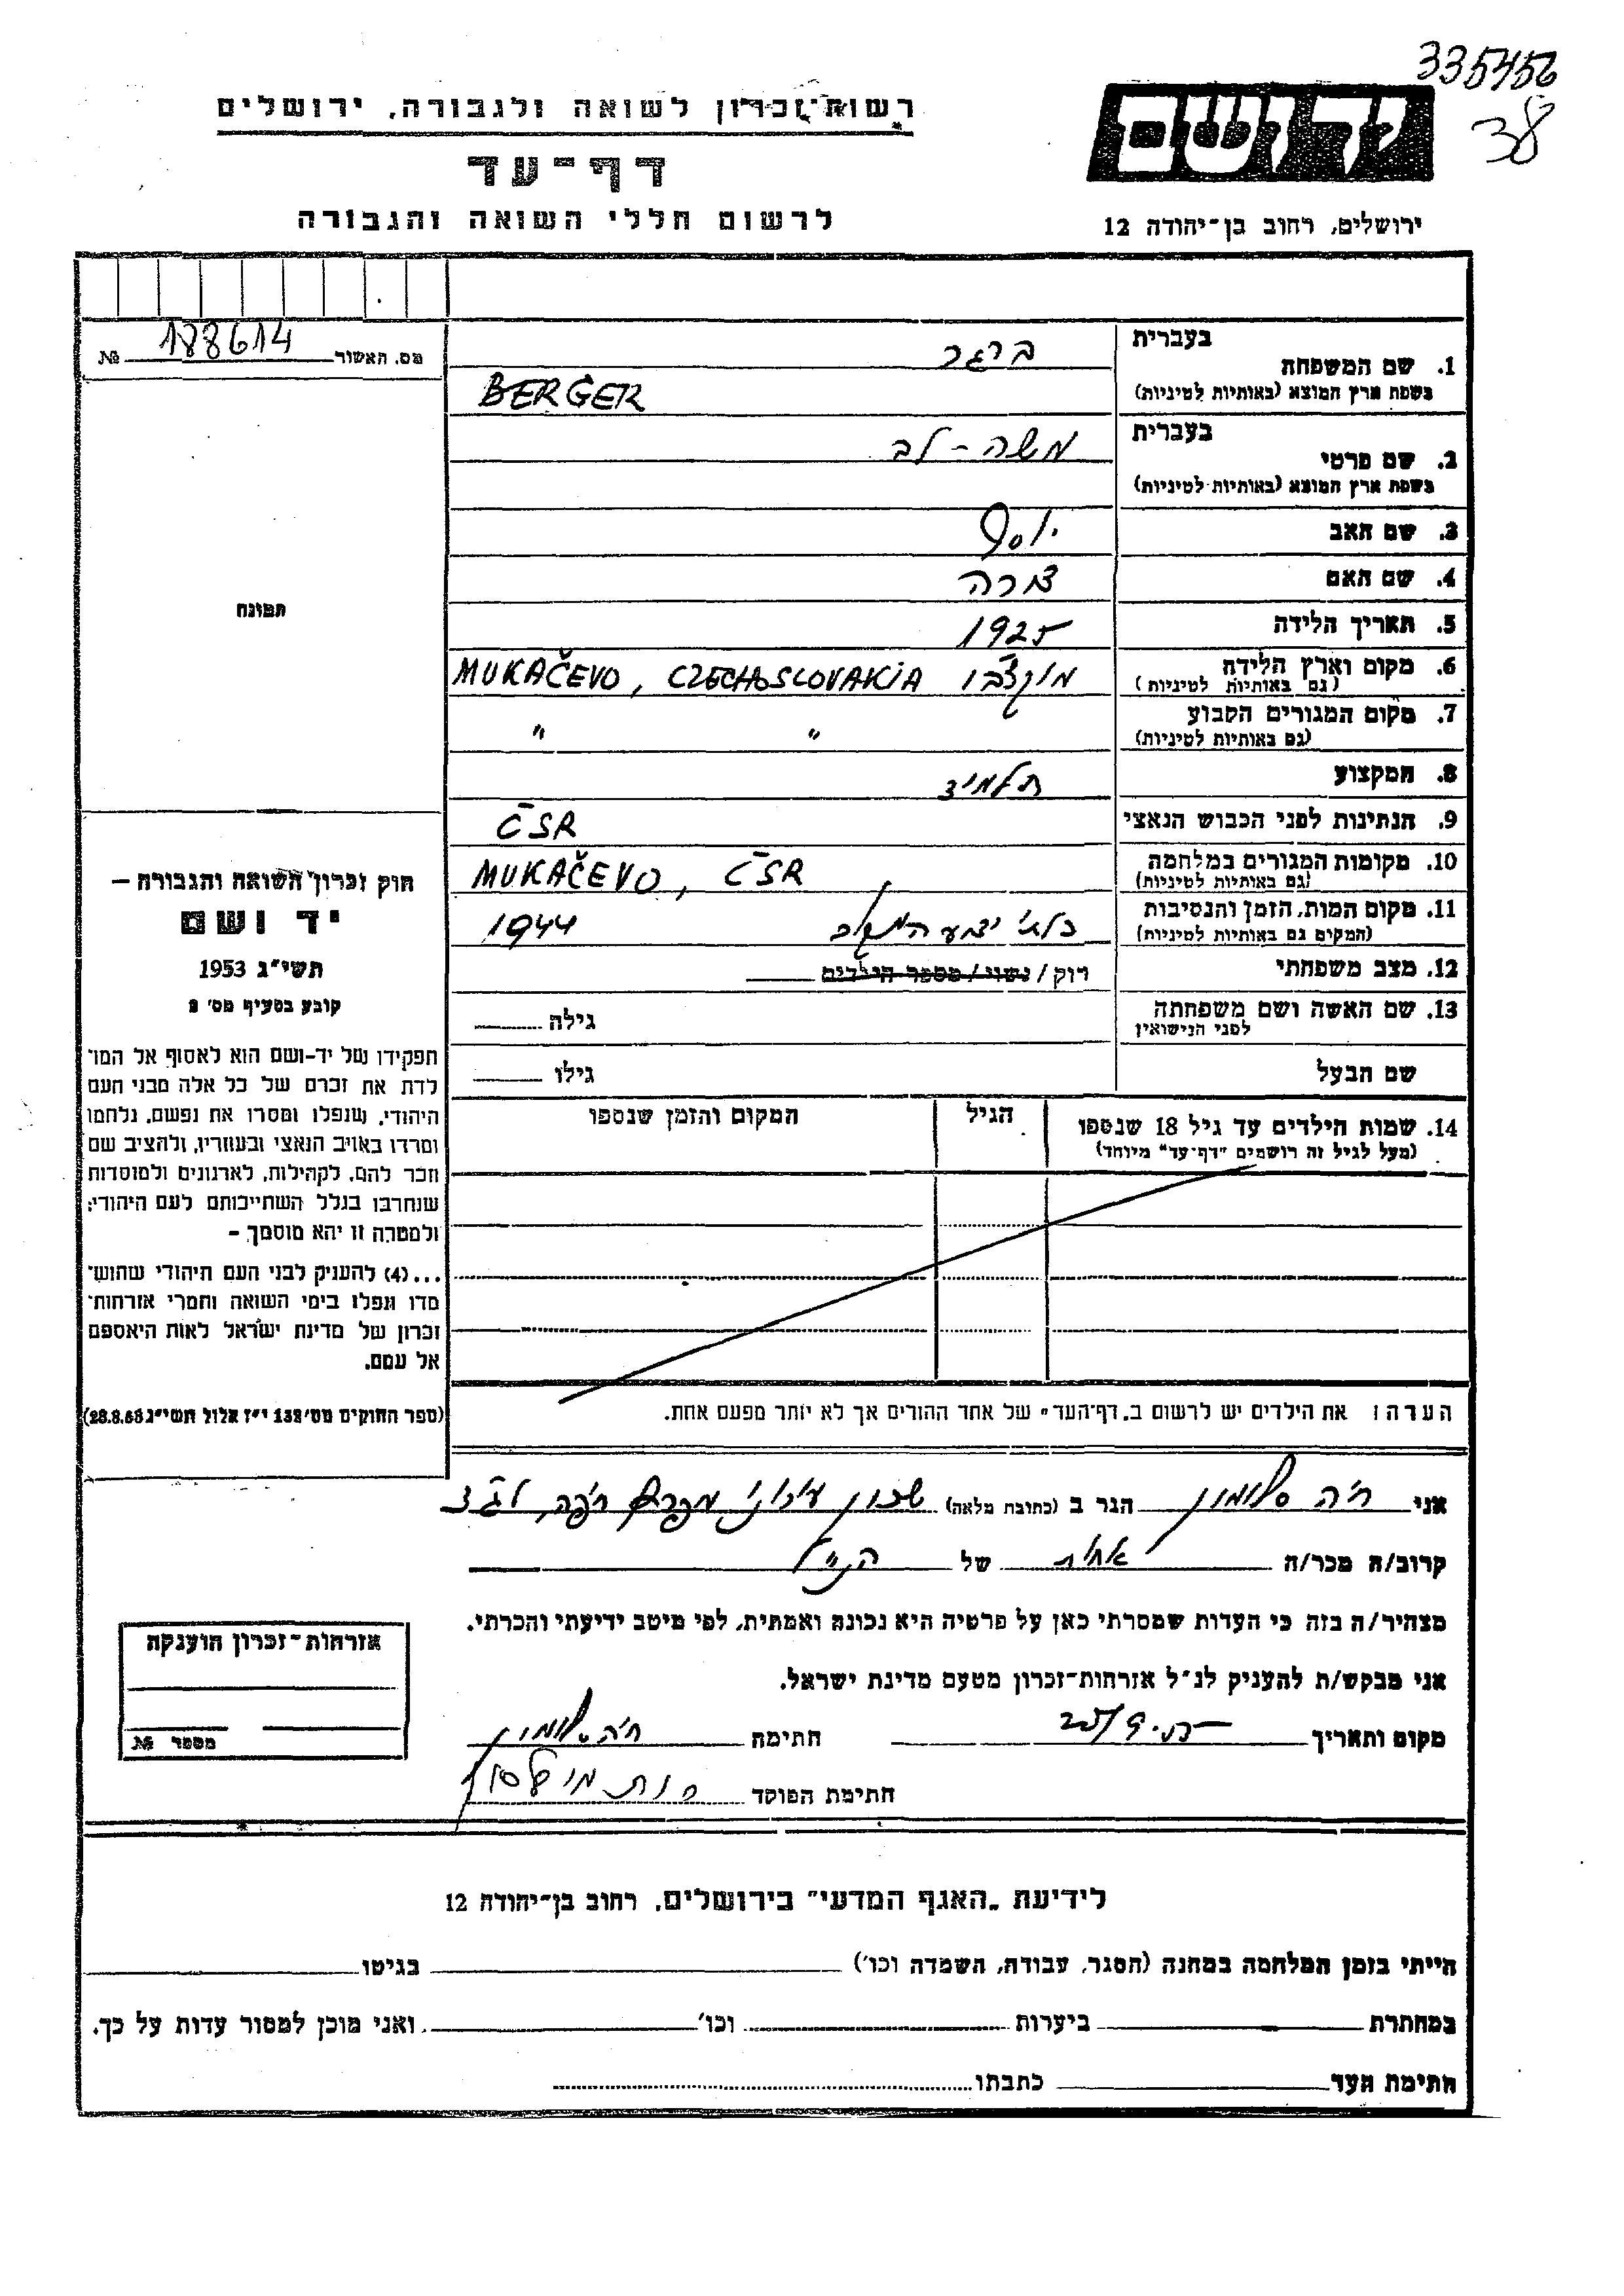 335456
38
יד ושם
ירושלים, רחוב בן־יהודה 12
רשות זכרון לשואה ולגבורה, ירושלים
דף־עד
לרשום חללי השואה והגבורה
מס. האשור 188614 №
תמונה
חוק זכרון השואה והגבורה —
יד ושם
תשי״ג 1953
קובע בסעיף מס׳ 2
תפקידו של יד-ושם הוא לאסוף אל המו־
לדת את זכרם של כל אלה מבני העם
היהודי, שנפלו ומסרו את נפשם, נלחמו
ומרדו באויב הנאצי ובעוזריו, ולהציב שם
וזכר להם, לקהילות, לארגונים ולמוסדות
שנחרבו בגלל השתייכותם לעם היהודי;
ולמטרה זו יהא מוסמך —
...(4) להעניק לבני העם היהודי שהוש־
מדו ונפלו בימי השואה והמרי אזרחות־
זכרון של מדינת ישראל לאות היאספם
אל עמם.
(ספר החוקים מס׳ 132 י״ז אלול תשי״ג 28.8.53)
בעברית ברגר
1. שם המשפחה
בשפת ארץ המוצא (באותיות לטיניות) BERGER
בעברית משה - לב
2. שם פרטי
בשפת ארץ המוצא (באותיות לטיניות)
3. שם האב יוסף
4. שם האם
5. תאריך הלידה 1925
6. מקום וארץ הלידה מוקצ'בו MUKAČEVO, CZECHOSLOVAKIA
(גם באותיות לטיניות)
7. מקום המגורים הקבוע " "
(גם באותיות לטיניות)
8. המקצוע תלמיד
9. הנתינות לפני הכבוש הנאצי ČSR
10. מקומות המגורים במלחמה MUKAČEVO, ČSR
(גם באותיות לטיניות)
11. מקום המות, הזמן והנסיבות 1944
(המקום גם באותיות לטיניות)
12. מצב משפחתי רוק / נשוי / מספר הילדים
13. שם האשה ושם משפחתה גילה
לפני הנישואין
שם הבעל גילו
14. שמות הילדים עד גיל 18 שנספו הגיל המקום והזמן שנספו
(מעל לגיל זה רושמים "דף־עד" מיוחד)
הערה: את הילדים יש לרשום ב„דף־העד״ של אחד ההורים אך לא יותר מפעם אחת.
אני חיה סלומון הגר ב (כתובת מלאה) שכון חיפה
קרוב/ה מכר/ה אחות של הנ״ל
מצהיר/ה בזה כי העדות שמסרתי כאן על פרטיה היא נכונה ואמתית, לפי מיטב ידיעתי והכרתי.
אני מבקש/ת להעניק לנ״ל אזרחות־זכרון מטעם מדינת ישראל.
מקום ותאריך חתימה חיה סלומון
חתימת הפוקד
אזרחות־זכרון הוענקה
מספר №
לידיעת „האגף המדעי״ בירושלים, רחוב בן־יהודה 12
הייתי בזמן המלחמה במחנה (הסגר, עבודה, השמדה וכו׳) בגיטו
במחתרת ביערות וכו׳ ואני מוכן למסור עדות על כך.
חתימת העד כתבתו